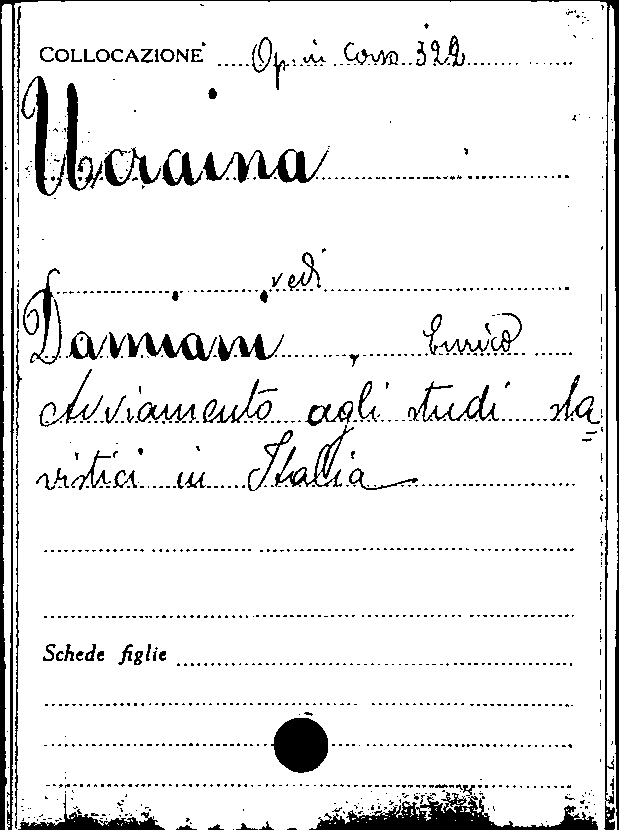 COLLOCAZIONE Op. in Corso 322
Ucraina
vedi
Damiani, Enrico
Avviamento agli studi sla=
vistici in Italia
Schede figlie